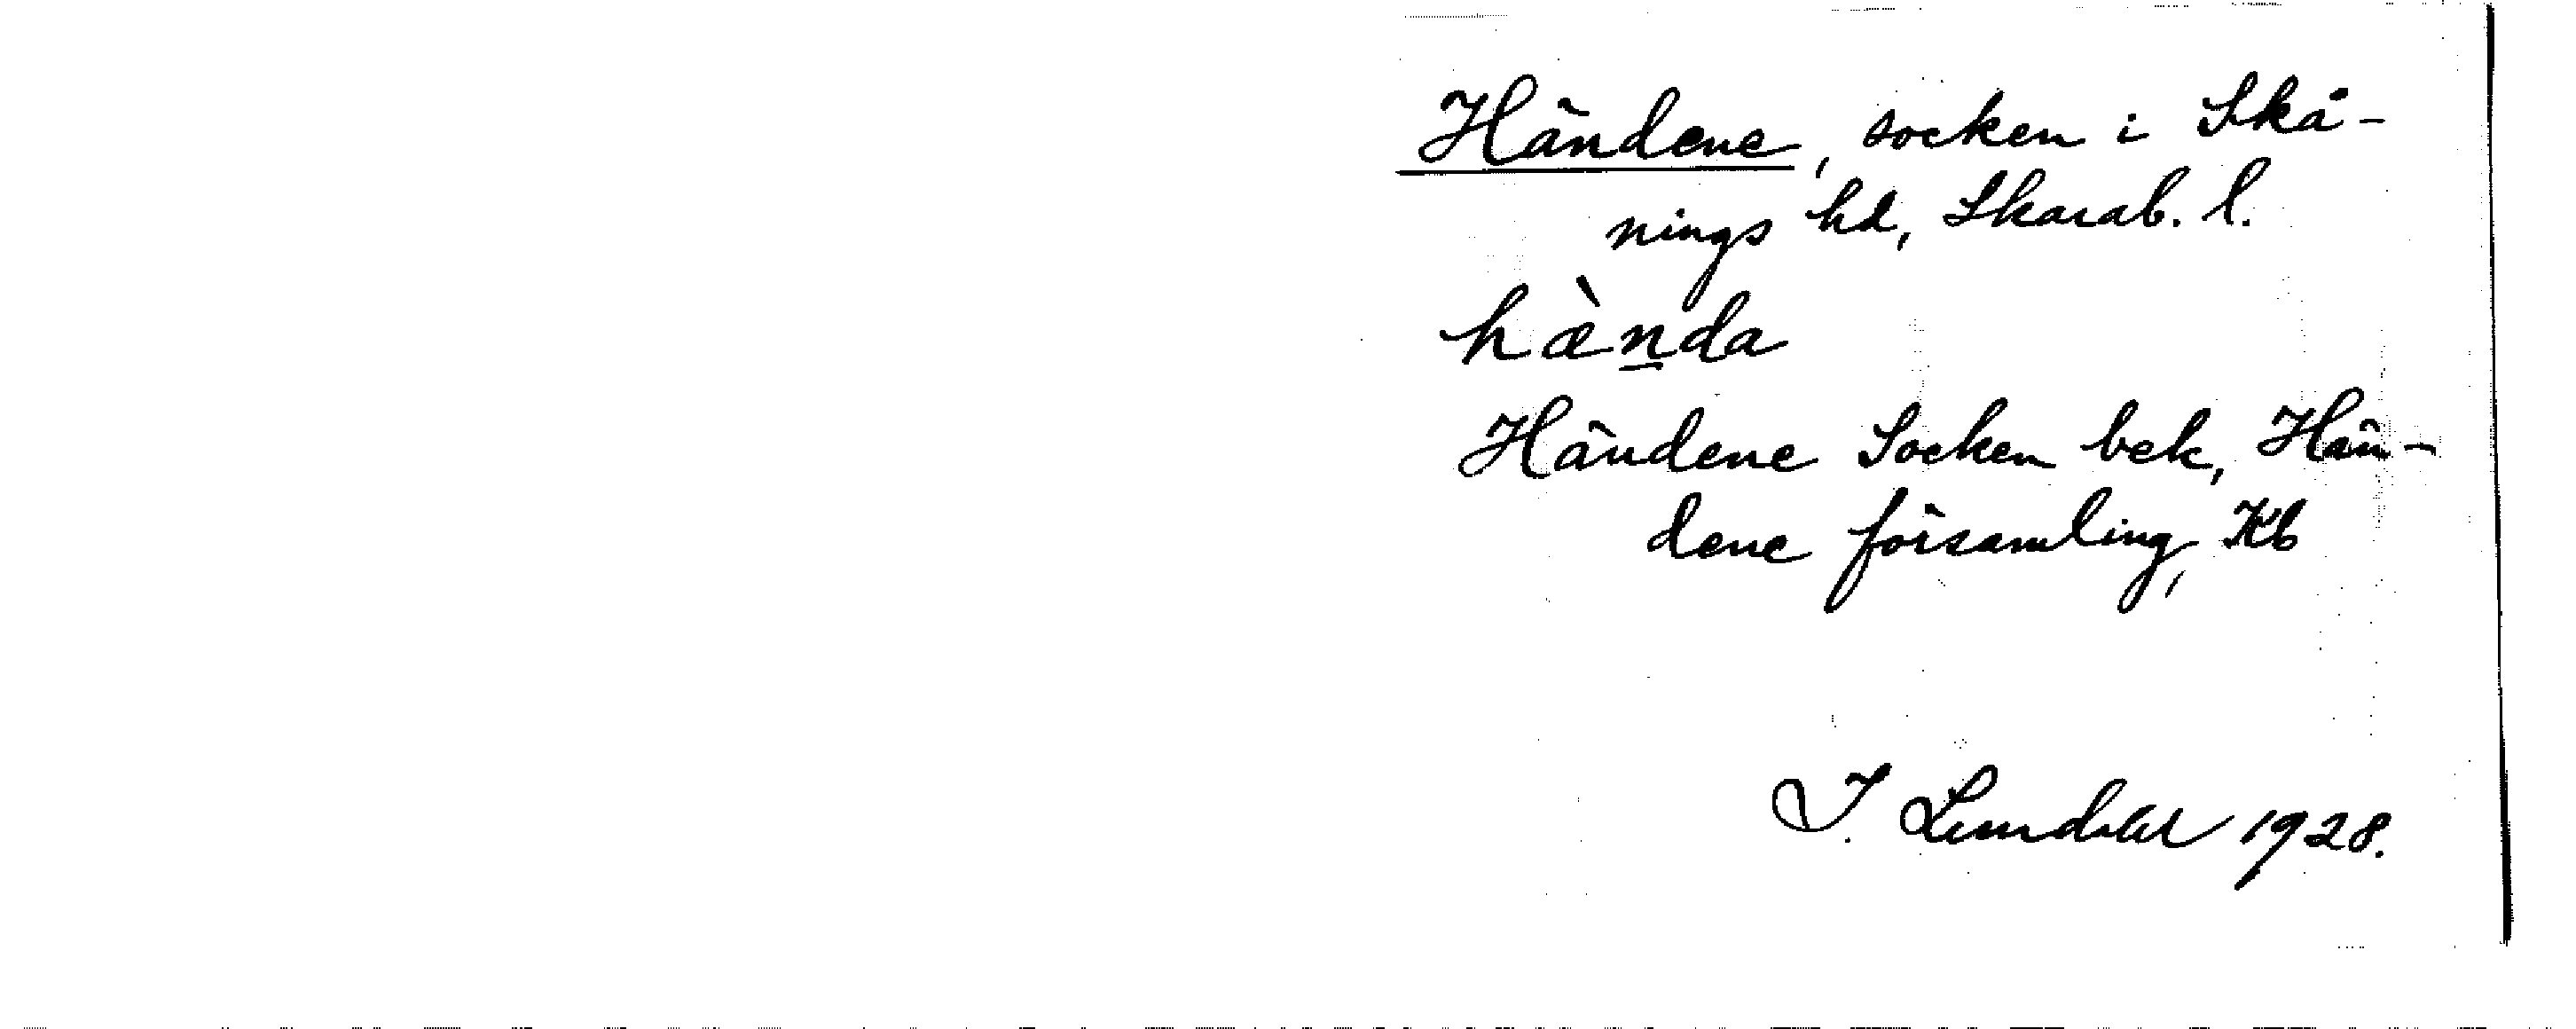 Händene, socken i Skå-
nings hd, Skarab. l.
hæ̀n̲da
Händene Socken bek, Hän-
dene församling, Kb
I. Lundahl 1928.